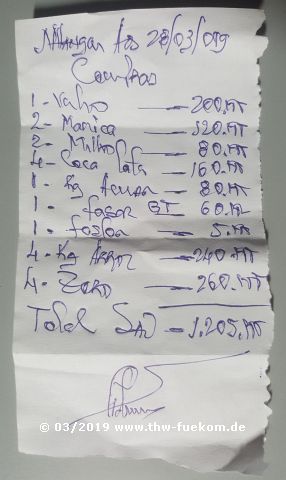 Nhangau Aos 28/03/019
Compras
1 - Vinho — 200.MT
2 - Manica — 120.MT
2 - — 80.MT
4 - Coca lata — 160.MT
1 - Kg — 80.MT
1 - GT 60.MT
1 - — 5.MT
4 - Kg Arroz — 240.MT
4 - — 260.MT
Total São — 1.205.MT
© 03/2019 www.thw-fuekom.de